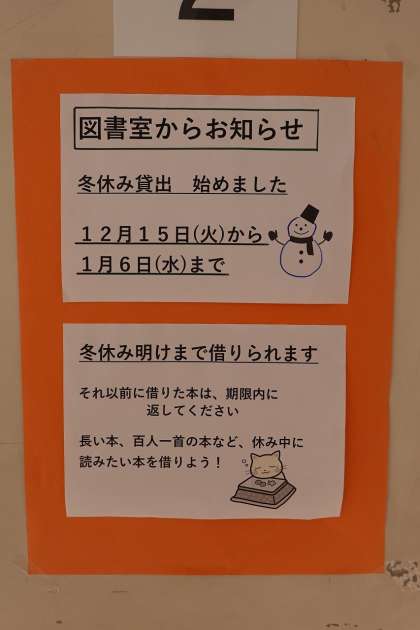 2
図書室からお知らせ
冬休み貸出 始めました
12月15日(火)から
1月6日(水)まで
冬休み明けまで借りられます
それ以前に借りた本は、期限内に
返してください
長い本、百人一首の本など、休み中に
読みたい本を借りよう!